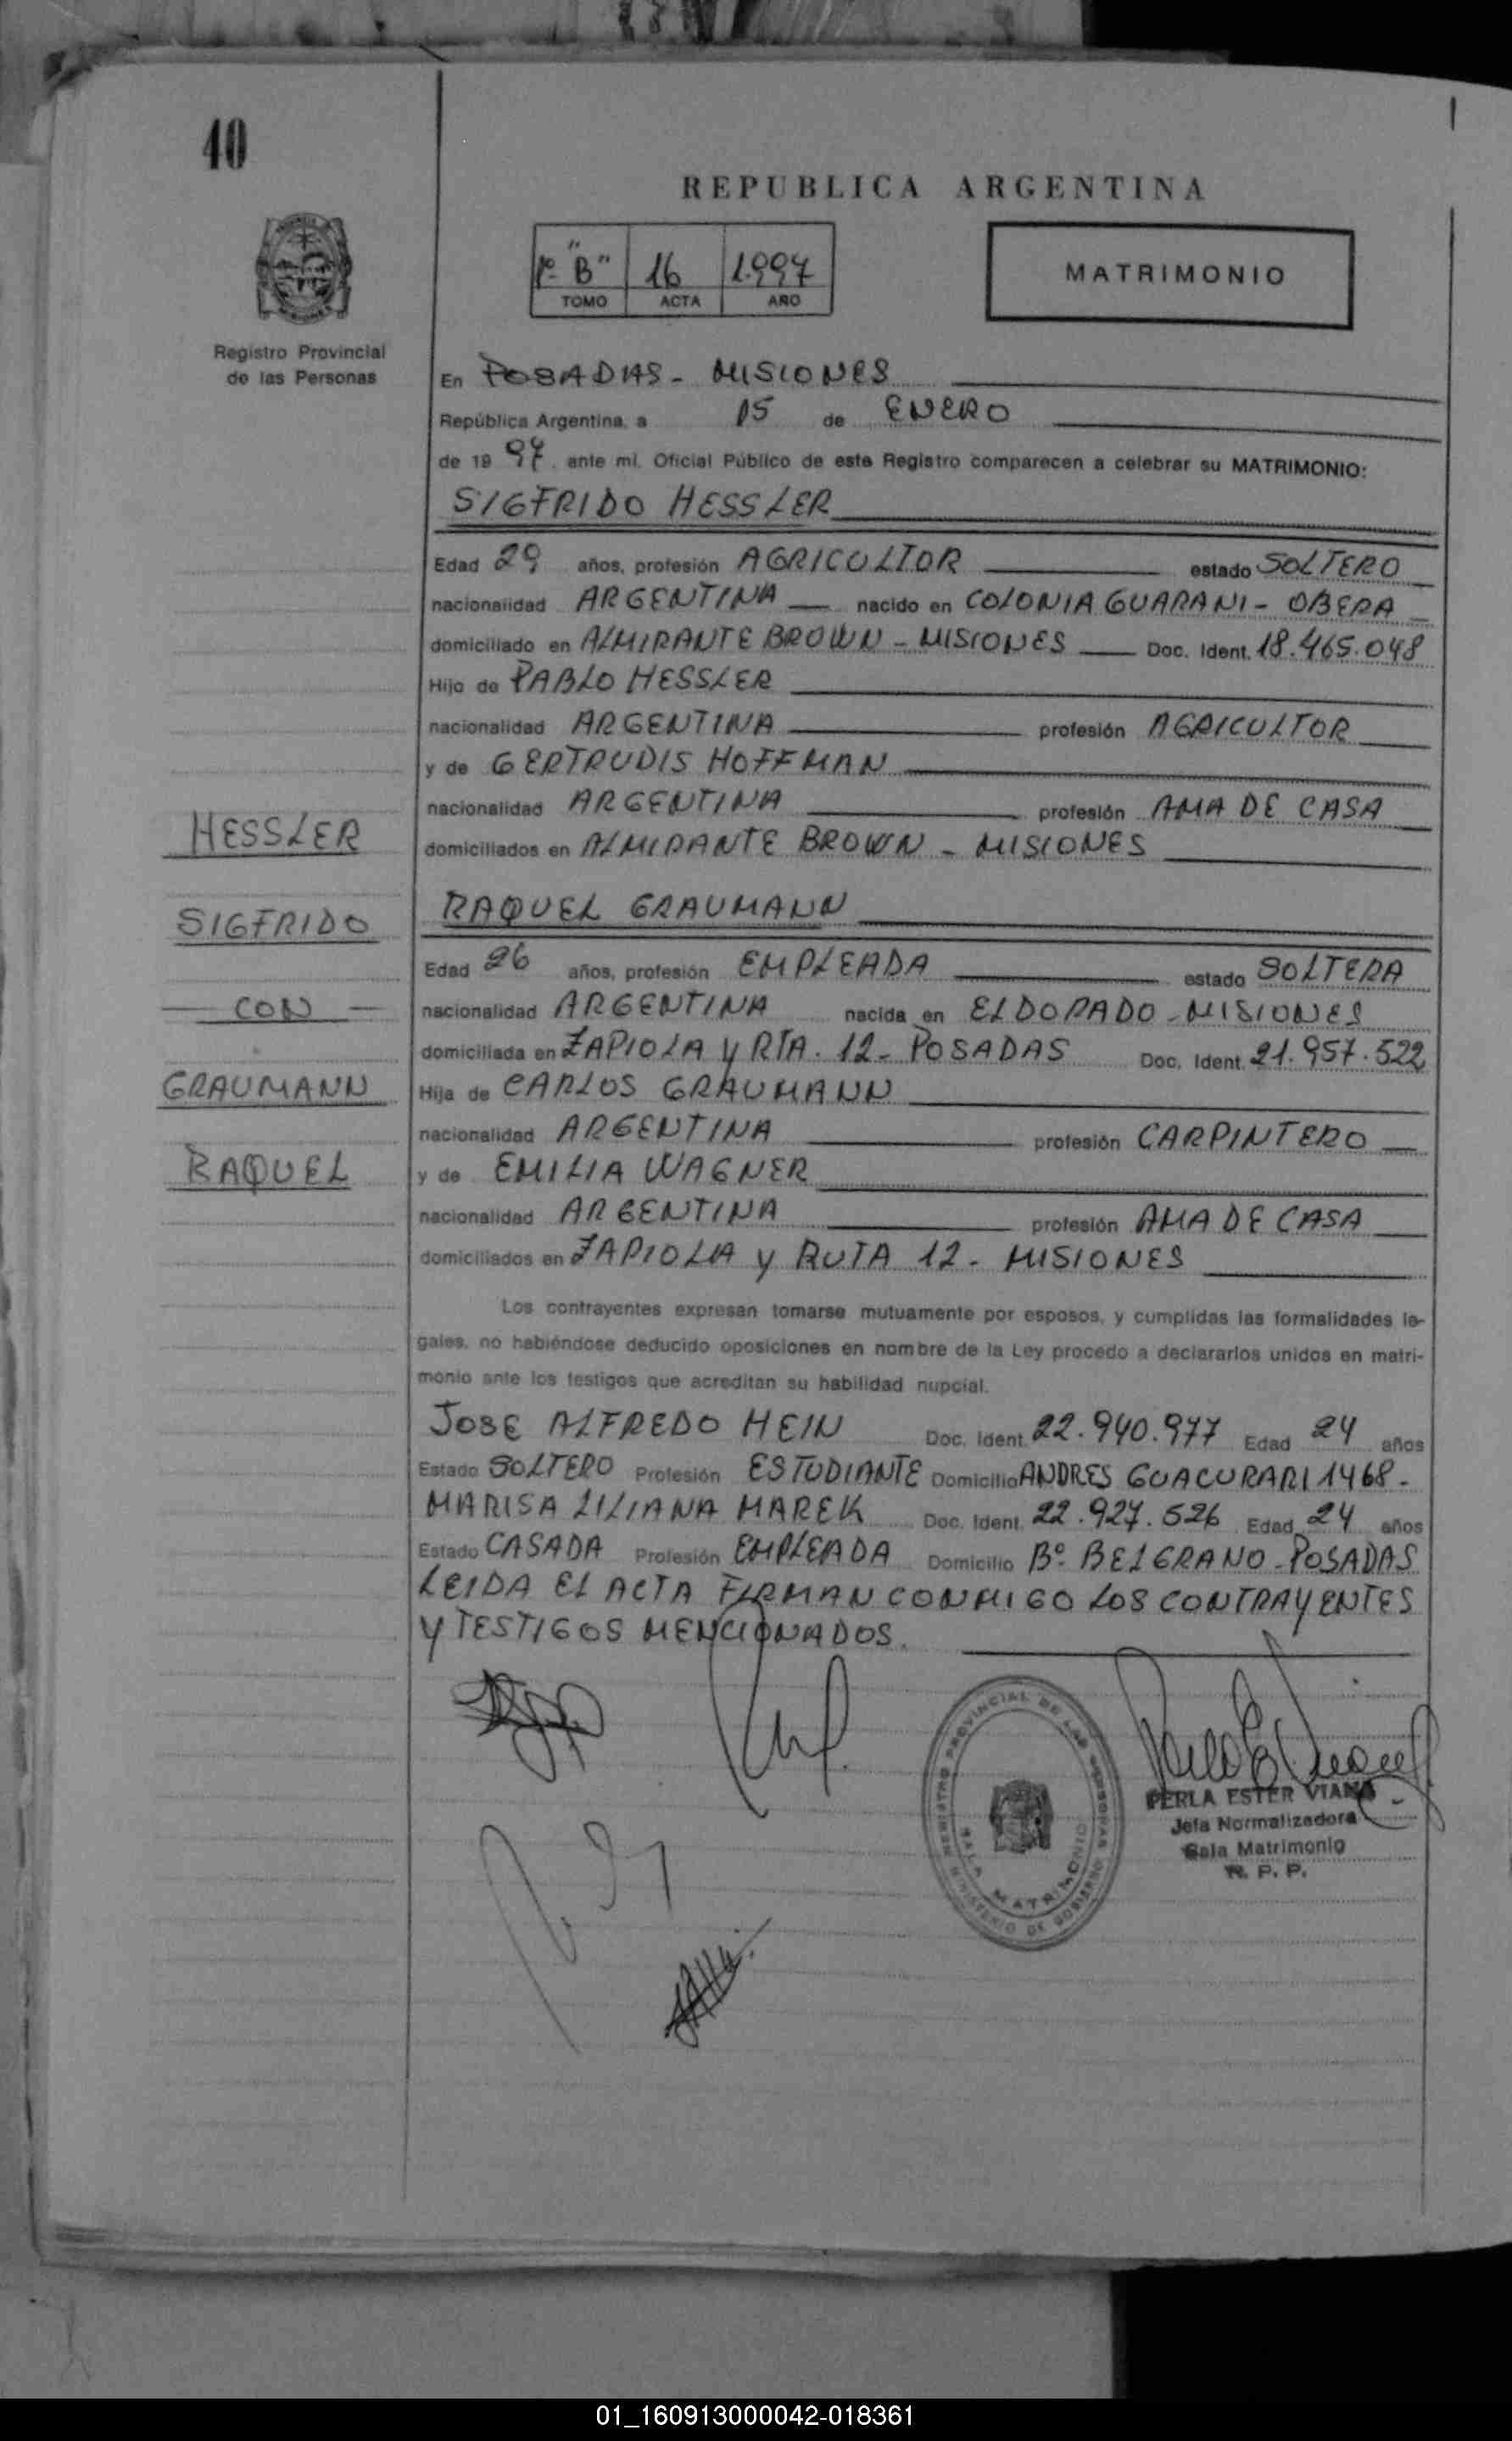 40
REPUBLICA ARGENTINA
1º "B" 16 1.997
TOMO ACTA AÑO
MATRIMONIO
Registro Provincial
de las Personas
En POSADAS - MISIONES
República Argentina, a 15 de ENERO
de 19 97 ante mi, Oficial Público de este Registro comparecen a celebrar su MATRIMONIO:
SIGFRIDO HESSLER
Edad 29 años, profesión AGRICULTOR estado SOLTERO
nacionalidad ARGENTINA nacido en COLONIA GUARANI - OBERA
domiciliado en ALMIRANTE BROWN - MISIONES Doc. Ident. 18.465.048
Hijo de PABLO HESSLER
nacionalidad ARGENTINA profesión AGRICULTOR
y de GERTRUDIS HOFFMAN
nacionalidad ARGENTINA profesión AMA DE CASA
domiciliados en ALMIRANTE BROWN - MISIONES
HESSLER
SIGFRIDO
- CON -
GRAUMANN
RAQUEL
RAQUEL GRAUMANN
Edad 26 años, profesión EMPLEADA estado SOLTERA
nacionalidad ARGENTINA nacida en ELDORADO - MISIONES
domiciliada en ZAPIOLA y RTA. 12 - POSADAS Doc. Ident. 21.957.522
Hija de CARLOS GRAUMANN
nacionalidad ARGENTINA profesión CARPINTERO
y de EMILIA WAGNER
nacionalidad ARGENTINA profesión AMA DE CASA
domiciliados en ZAPIOLA y RUTA 12 - MISIONES
Los contrayentes expresan tomarse mutuamente por esposos, y cumplidas las formalidades le-
gales, no habiéndose deducido oposiciones en nombre de la Ley procedo a declararlos unidos en matri-
monio ante los testigos que acreditan su habilidad nupcial.
JOSE ALFREDO HEIN Doc. Ident. 22.940.977 Edad 24 años
Estado SOLTERO Profesión ESTUDIANTE Domicilio ANDRES GUACURARI 1468 -
MARISA LILIANA MAREK Doc. Ident. 22.927.526 Edad 24 años
Estado CASADA Profesión EMPLEADA Domicilio Bº BELGRANO - POSADAS
LEIDA EL ACTA FIRMAN CONMIGO LOS CONTRAYENTES
Y TESTIGOS MENCIONADOS.
REGISTRO PROVINCIAL DE LAS PERSONAS
MINISTERIO DE GOBIERNO
SALA MATRIMONIO
PERLA ESTER VIANA
Jefa Normalizadora
Sala Matrimonio
R. P. P.
01_160913000042-018361